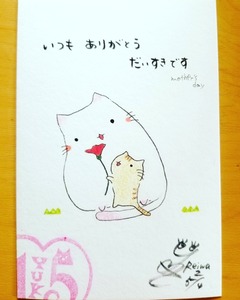 いつも ありがとう
だいすきです
mother's
day
Reiwa
2
YUKO
15